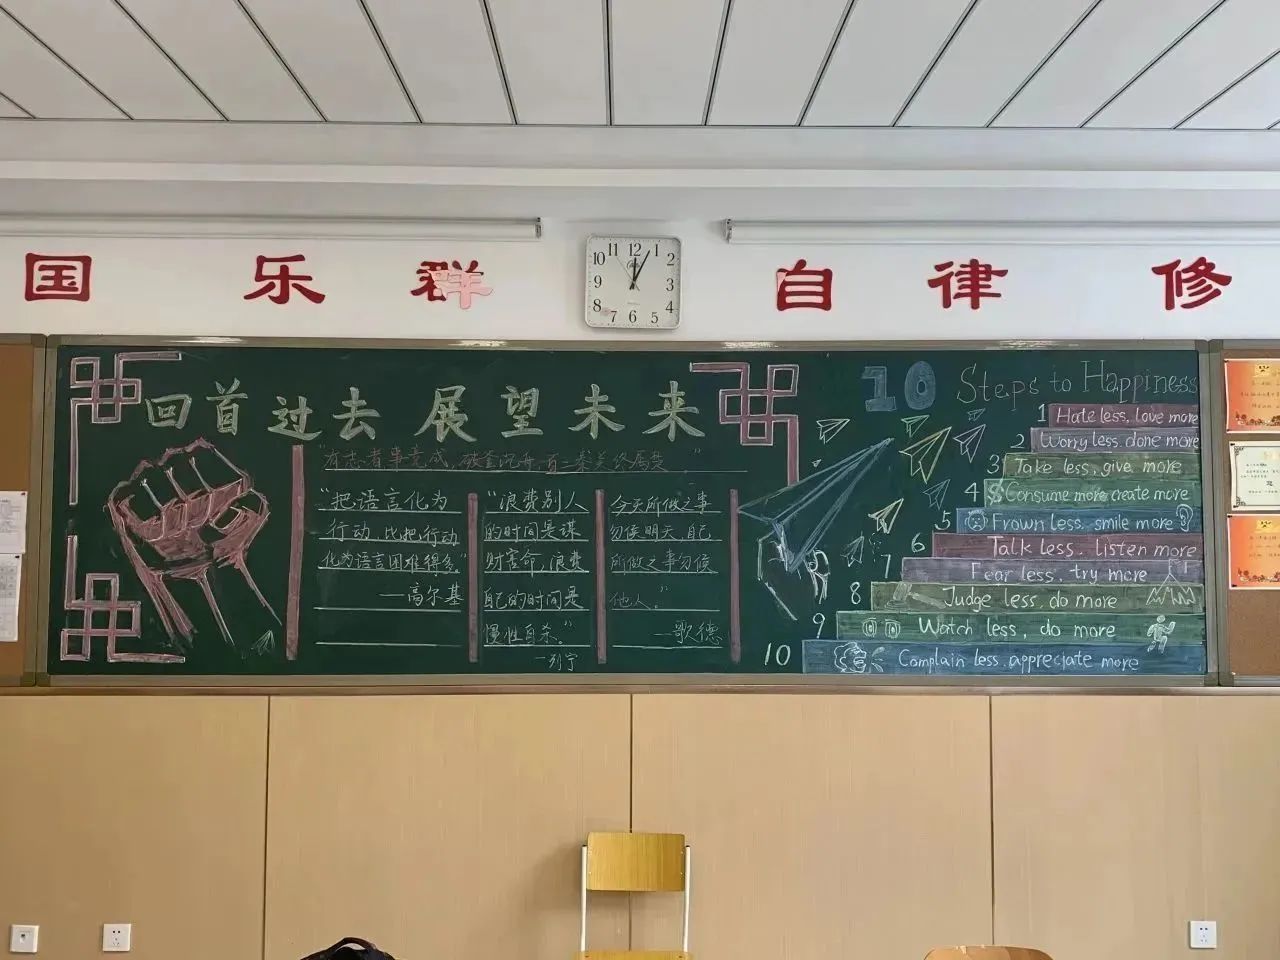 国 乐 群 自 律 修
11 12 1
10 2
9 3
8 4
7 6 5
回首过去 展望未来
"有志者事竟成,破釜沉舟,百二秦关终属楚。"
"把语言化为
行动,比把行动
化为语言困难得多。"
—高尔基
"浪费别人
的时间是谋
财害命,浪费
自己的时间是
慢性自杀。"
—列宁
今天所做之事
勿候明天,自己
所做之事勿候
他人。"
—歌德
10 Steps to Happiness
1 Hate less, love more
2 Worry less, done more
3 Take less, give more
4 Consume more create more
5 Frown less, smile more
6 Talk less. listen more
7 Fear less, try more
8 Judge less, do more
9 Watch less, do more
10 Complain less, appreciate more